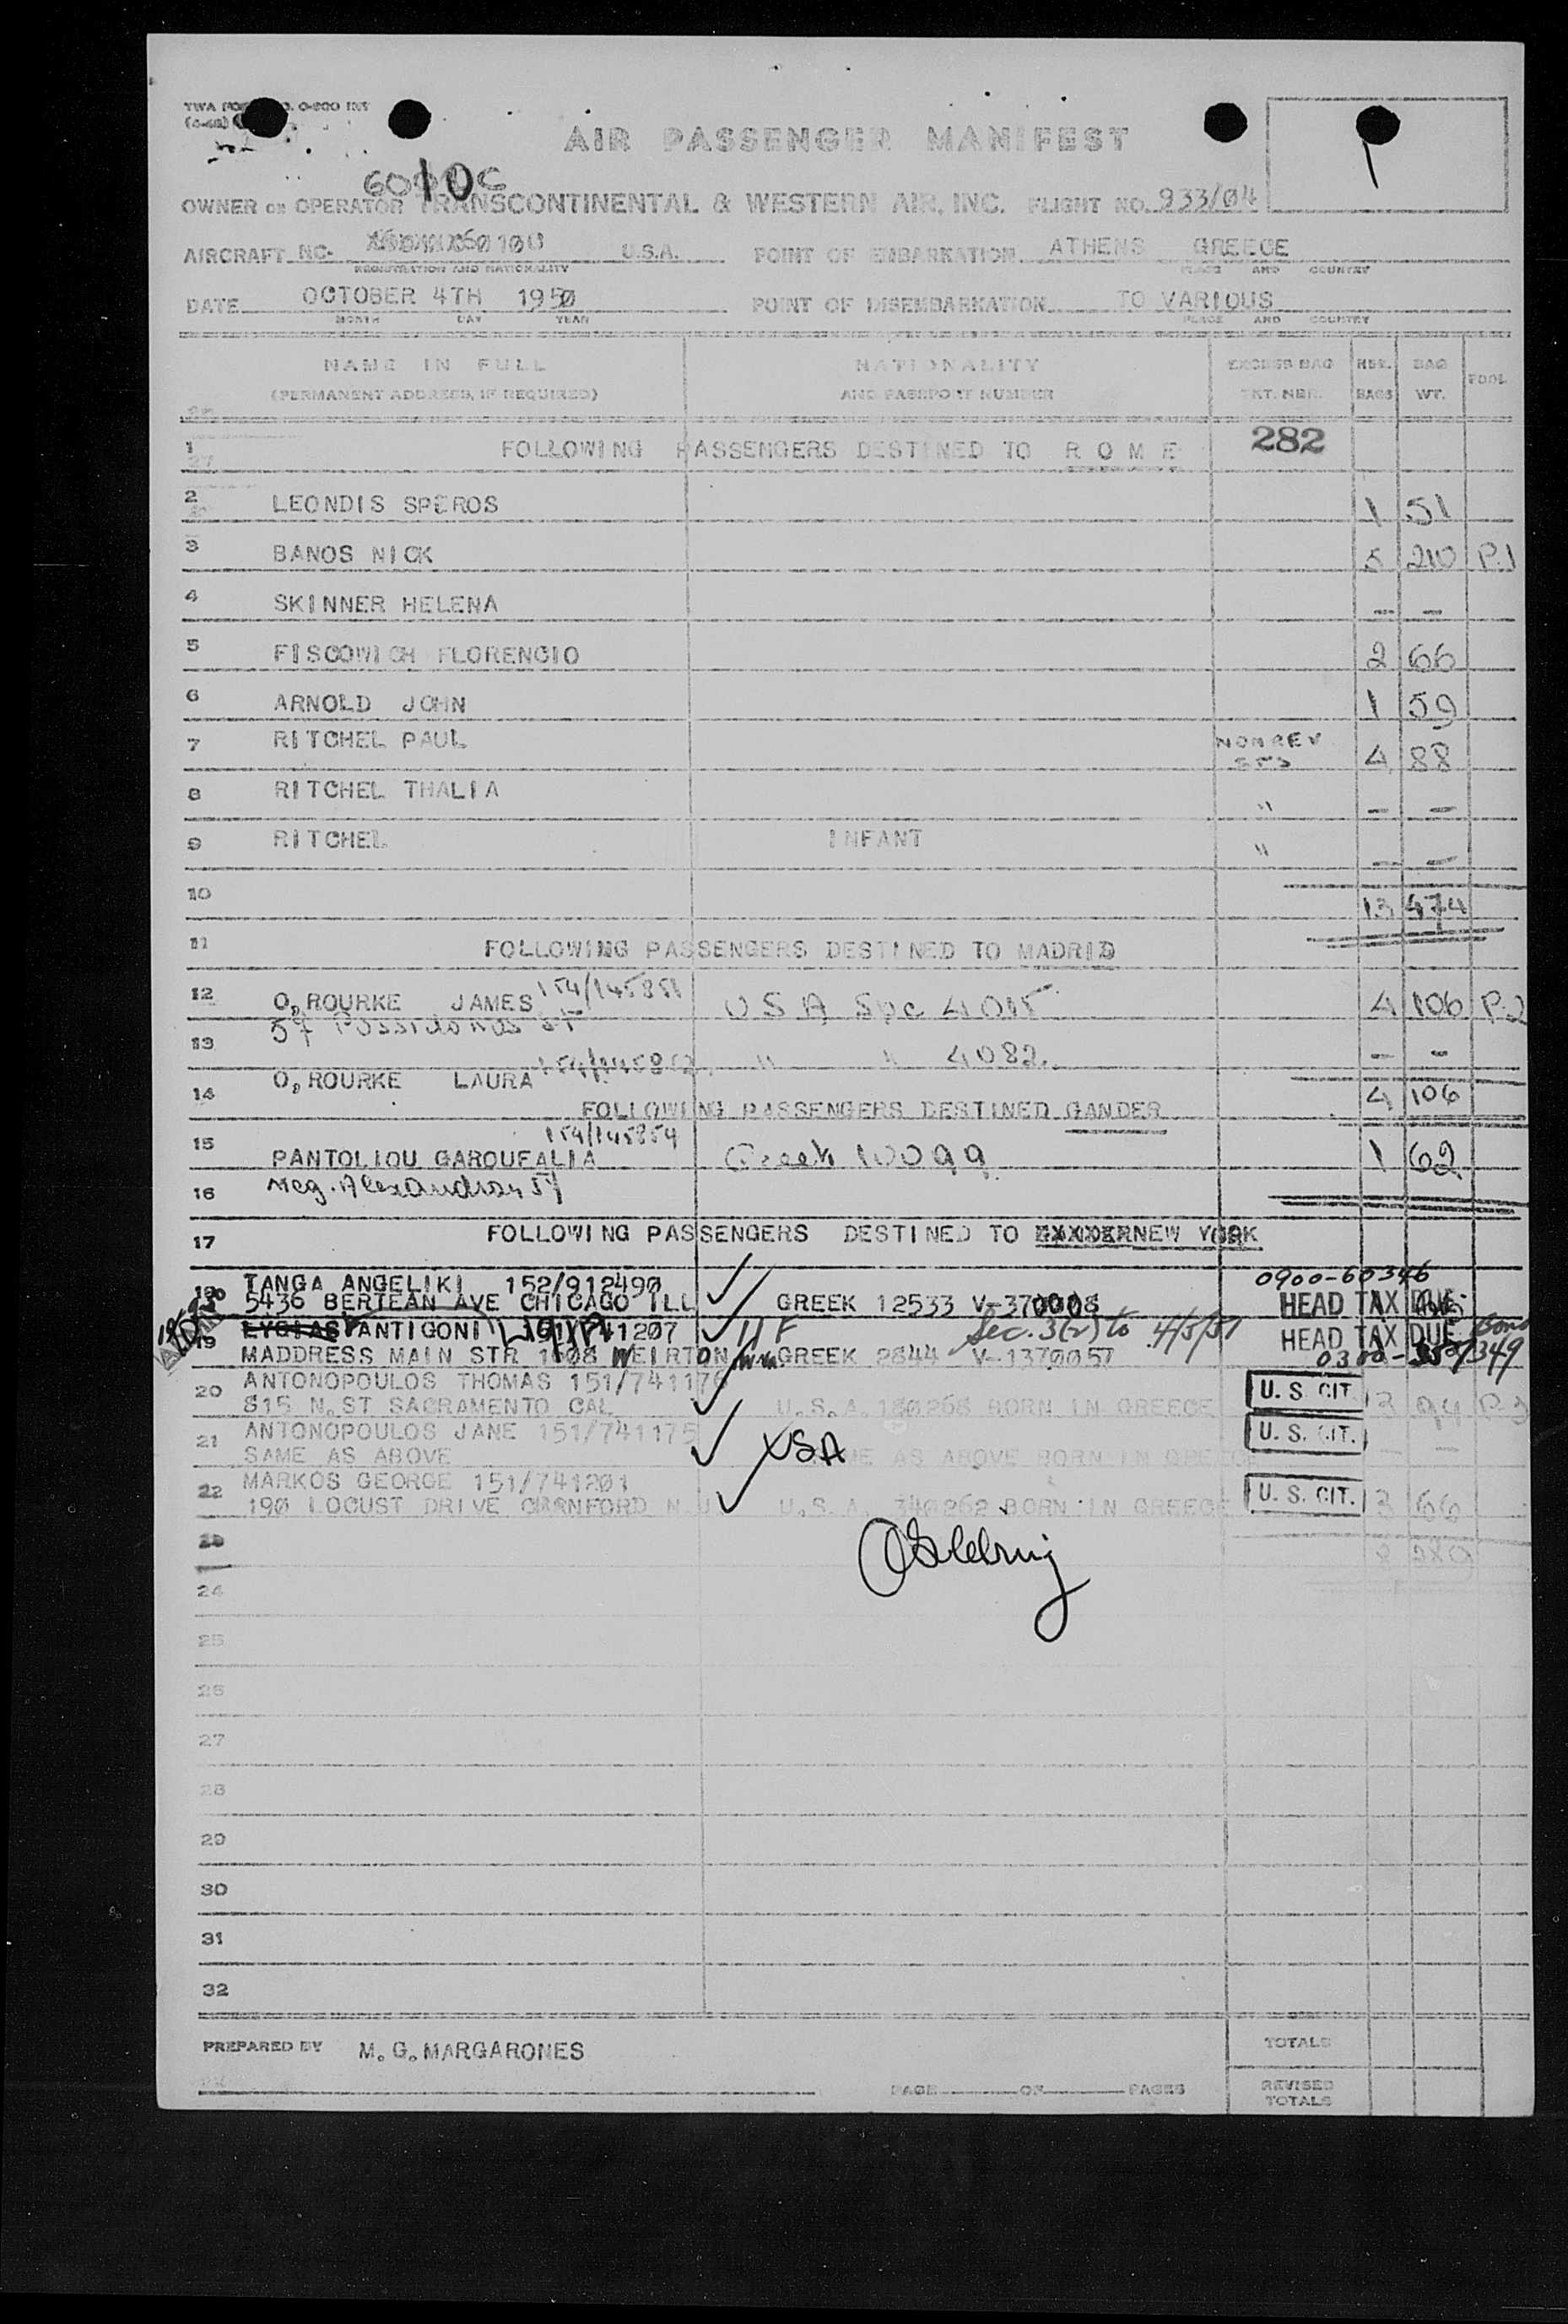 AIR PASSENGER MANIFEST
OWNER OR OPERATOR TRANSCONTINENTAL & WESTERN AIR, INC. FLIGHT NO. 933/04
AIRCRAFT NO. U.S.A. POINT OF EMBARKATION ATHENS GREECE
REGISTRATION AND NATIONALITY PLACE AND COUNTRY
DATE OCTOBER 4TH 1950 POINT OF DISEMBARKATION TO VARIOUS
MONTH DAY YEAR PLACE AND COUNTRY
NAME IN FULL NATIONALITY EXCESS BAG NBR. BAG POOL
(PERMANENT ADDRESS, IF REQUIRED) AND PASSPORT NUMBER TKT. NBR. BAGS WT.
1 FOLLOWING PASSENGERS DESTINED TO R O M E 282
2 LEONDIS SPEROS 1 51
3 BANOS NICK 5 210 P.1
4 SKINNER HELENA - -
5 FISCOWICH FLORENCIO 2 66
6 ARNOLD JOHN 1 59
7 RITCHEL PAUL NONREV 4 88
8 RITCHEL THALIA " - -
9 RITCHEL INFANT " - -
10 13 474
11 FOLLOWING PASSENGERS DESTINED TO MADRID
12 O,ROURKE JAMES 154/145851 USA Spc 4 106 P.2
57 Possidonos ST
13 " " 4082. - -
O,ROURKE LAURA
14 4 106
FOLLOWING PASSENGERS DESTINED GANDER
154/145854
15 PANTOLIOU GAROUFALIA Greek 10099 1 62
16 Meg. Alexandrou 57
17 FOLLOWING PASSENGERS DESTINED TO NEW YORK
TANGA ANGELIKI 152/912490 0900-60346
5436 BERTEAN AVE CHICAGO ILL GREEK 12533 HEAD TAX DUE
ANTIGONI 1207 Sec. 3(2) to 4/5/51 HEAD TAX DUE
19 MADDRESS MAIN STR 1608 WEIRTON GREEK 2844 V-1370057
ANTONOPOULOS THOMAS 151/741176
20 815 N.ST SACRAMENTO CAL U.S.A. 180268 BORN IN GREECE U. S. CIT. 94 P.3
ANTONOPOULOS JANE 151/741175 USA U. S. CIT. - -
21 SAME AS ABOVE AS ABOVE BORN IN GREECE
MARKOS GEORGE 151/741201
22 190 LOCUST DRIVE CRANFORD N.J U.S.A. 340262 BORN IN GREECE U. S. CIT. 3 66
8
24
25
26
27
28
29
30
31
32
PREPARED BY M.G.MARGARONES TOTALS
PAGE OF PAGES REVISED
TOTALS